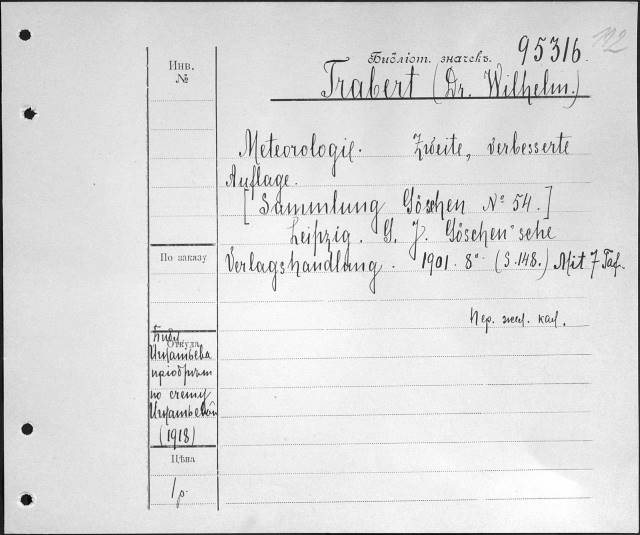 112
Библіот. значекъ. 95316.
Инв. №
Trabert (Dr. Wilhelm.)
Meteorologie. Zweite, verbesserte
Auflage.
[Sammlung Göschen № 54.]
Leipzig. G. J. Göschen'sche
Verlagshandlung. 1901. 8° (S. 148.) Mit 7 Taf.
По заказу
Пер. жел. кал.
Откуда
Библ.
Игнатьева
пріобрѣт
по счету
Игнатьевой
(1918)
Цѣна
1 р.